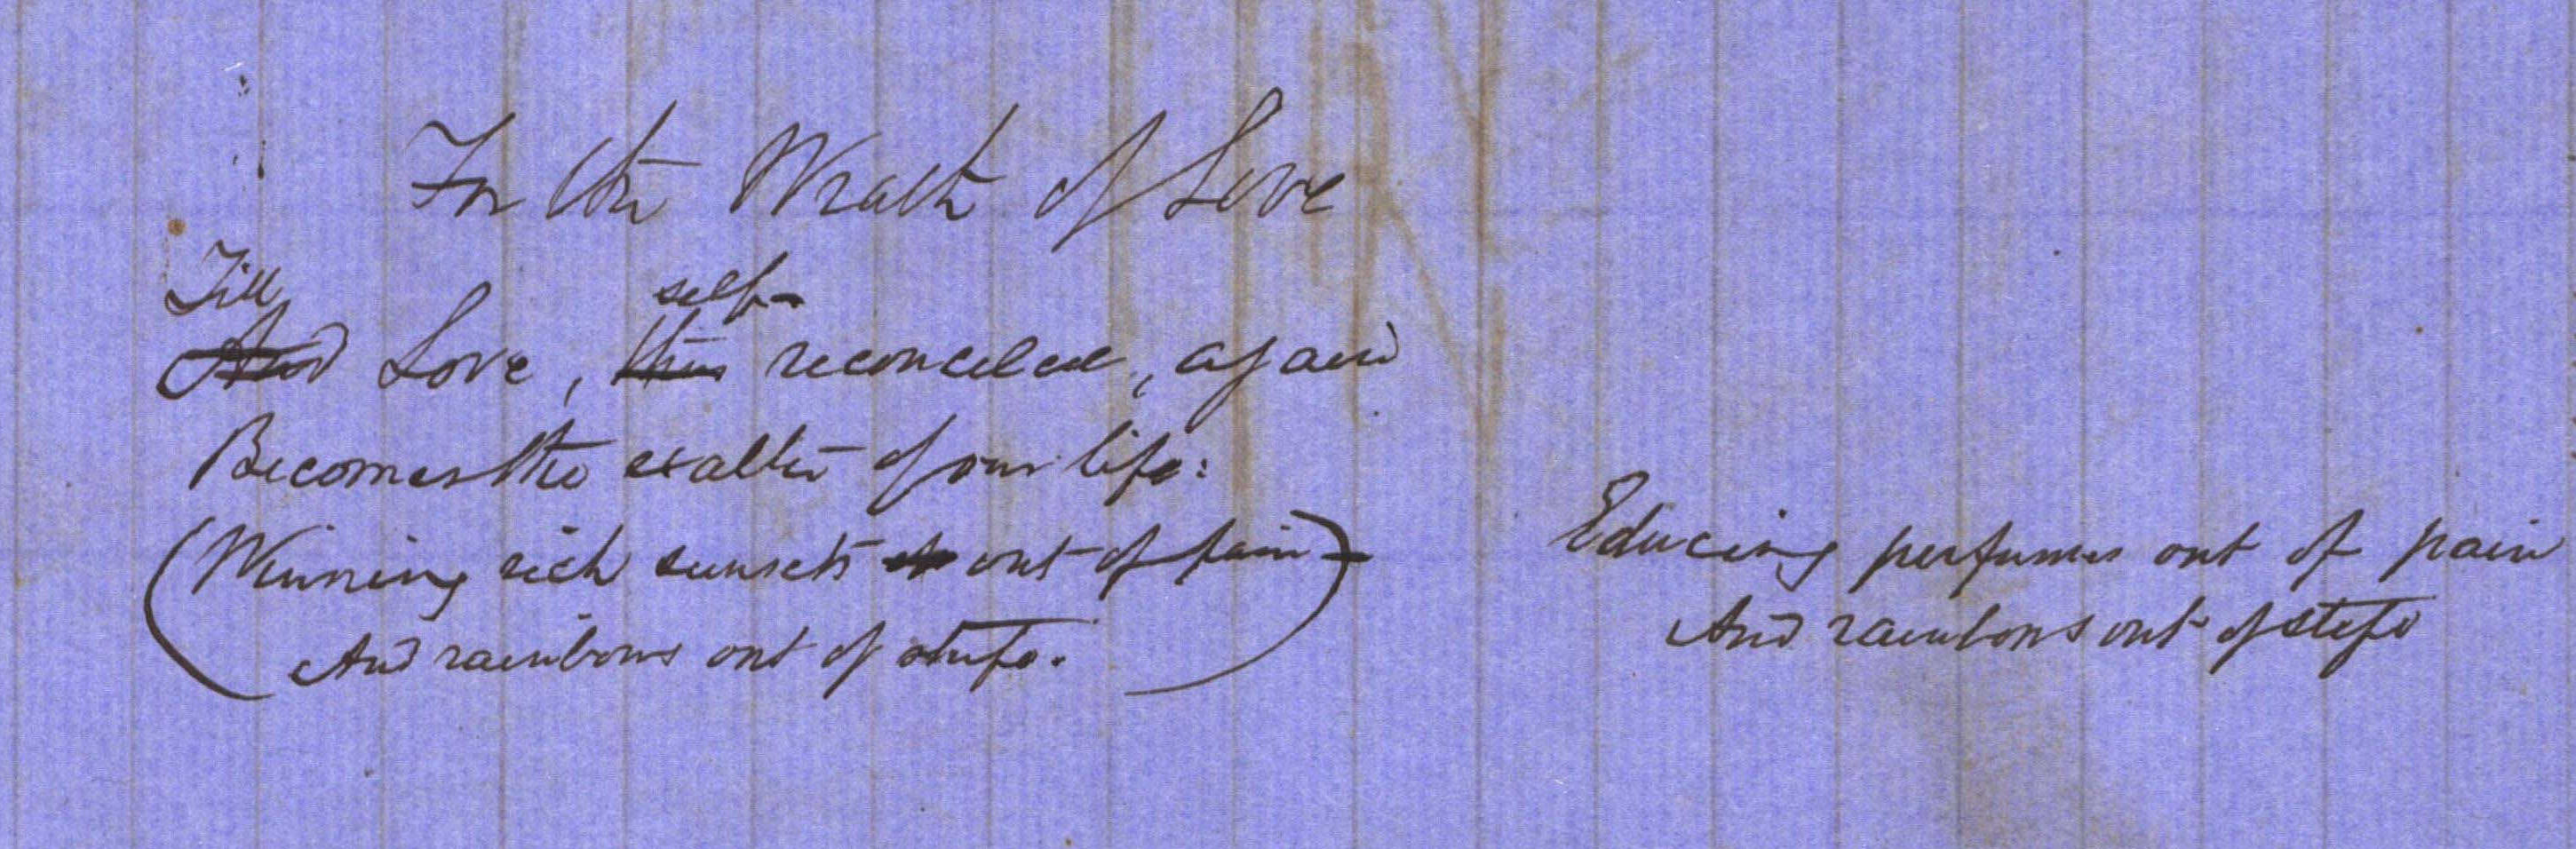 For the Wrath of Love
Till self-
And Love, thus reconciled, again
Becomes the exalter of our life:
(Winning rich sunsets out of pain
And rainbows out of strife.)
Educing perfumes out of pain
And rainbows out of strife